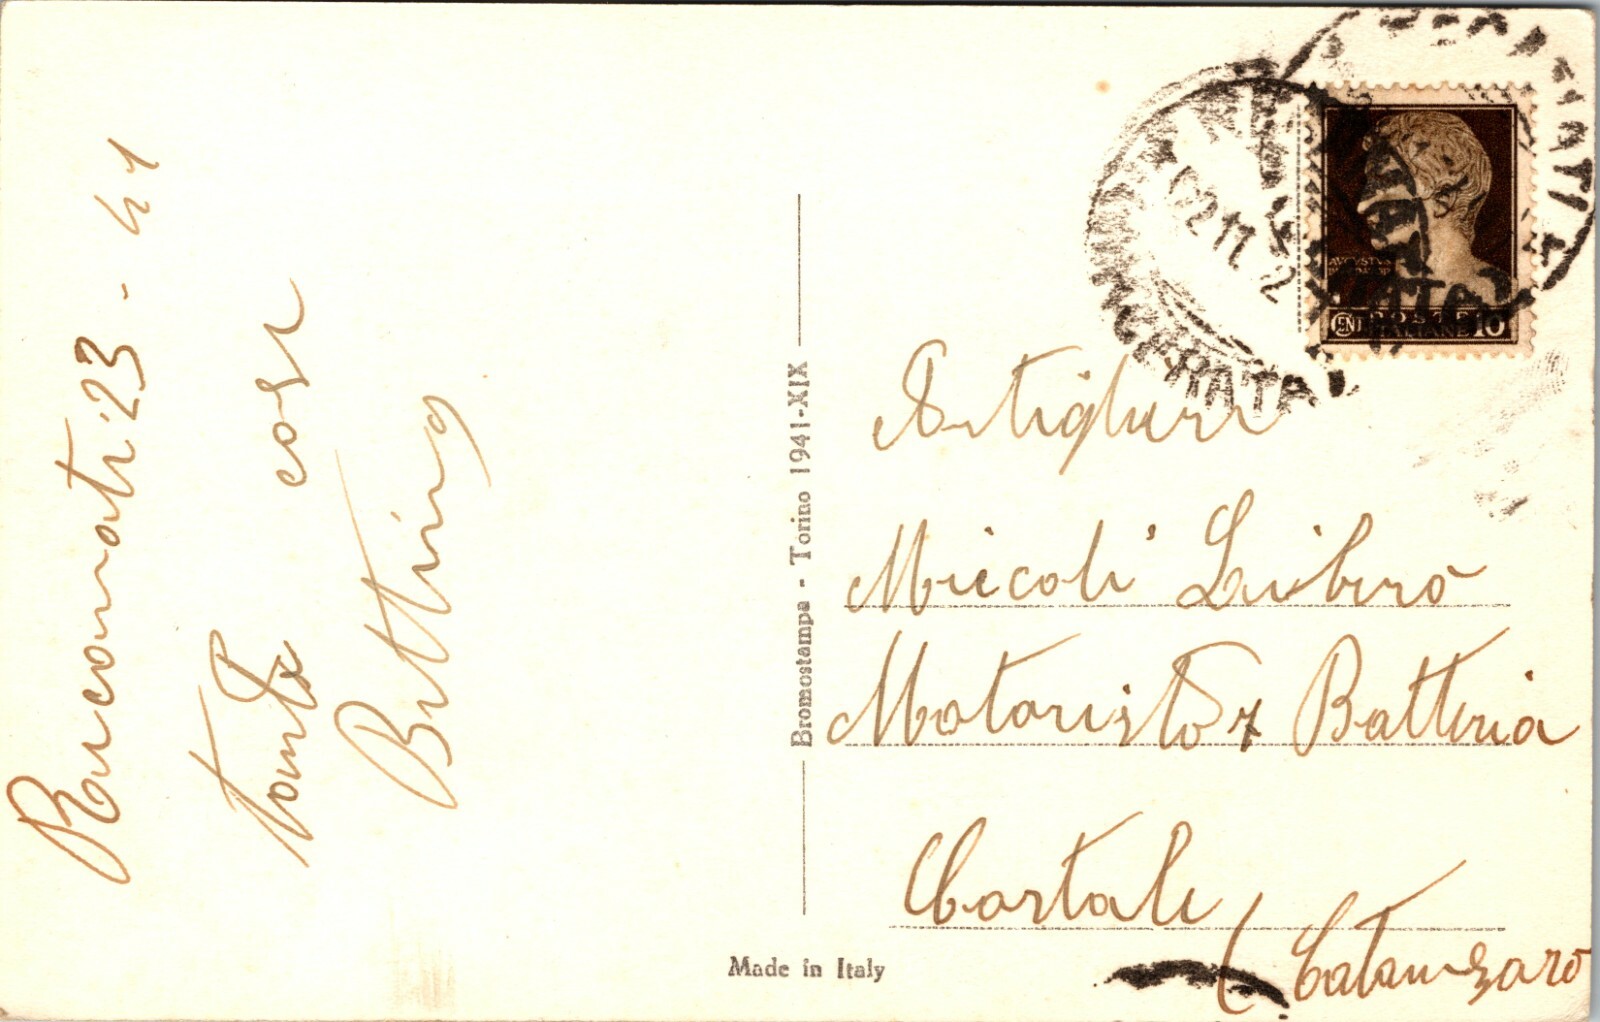 Recanati 23 - 4 41
Tante cose
Bettina
Bromostampa - Torino 1941-XIX
Made in Italy
POSTE
ITALIANE
CENT 10
MACERATA
Artigliere
Miccoli Libero
Motorista 7 Batteria
Cortale
(Catanzaro